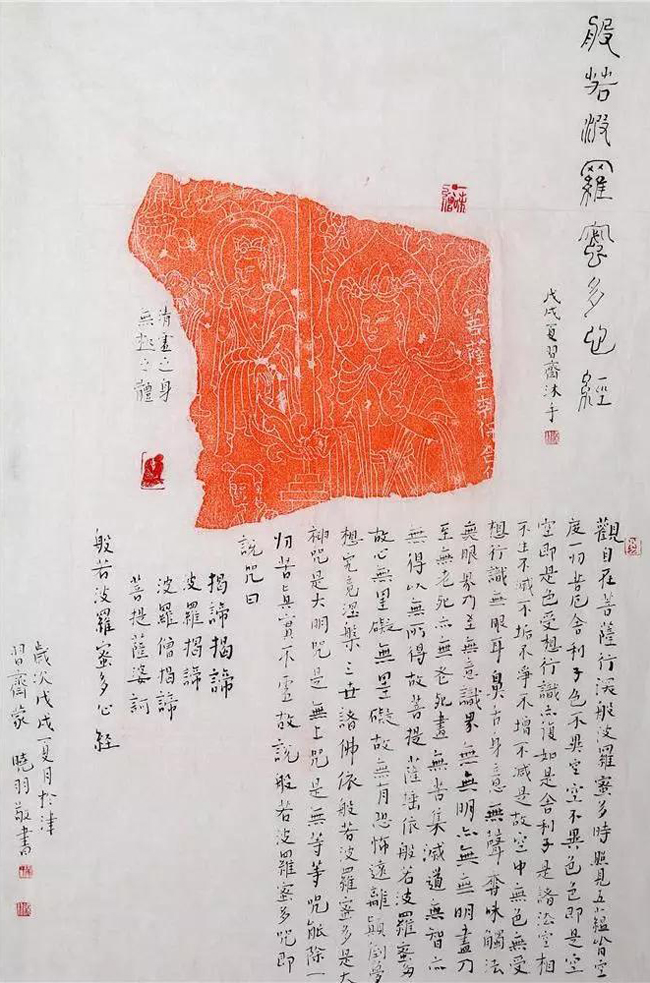 般若波羅蜜多心經
戊戌夏習齋沐手
菩薩主李
清虛之身
無極之體
觀自在菩薩行深般若波羅蜜多時照見五蘊皆空
度一切苦厄舍利子色不異空空不異色色即是空
空即是色受想行識亦復如是舍利子是諸法空相
不生不滅不垢不淨不增不減是故空中無色無受
想行識無眼耳鼻舌身意無聲香味觸法
無眼界乃至無意識界無無明亦無無明盡乃
至無老死亦無老死盡無苦集滅道無智亦
無得以無所得故菩提薩埵依般若波羅蜜多
故心無罣礙無罣礙故無有恐怖遠離顛倒夢
想究竟涅槃三世諸佛依般若波羅蜜多是大
神咒是大明咒是無上咒是無等等咒能除一
切苦真實不虛故說般若波羅蜜多咒即
說咒曰
揭諦揭諦
波羅揭諦
波羅僧揭諦
菩提薩婆訶
般若波羅蜜多心経
歲次戊戌夏月於津
習齋蒙曉羽敬書